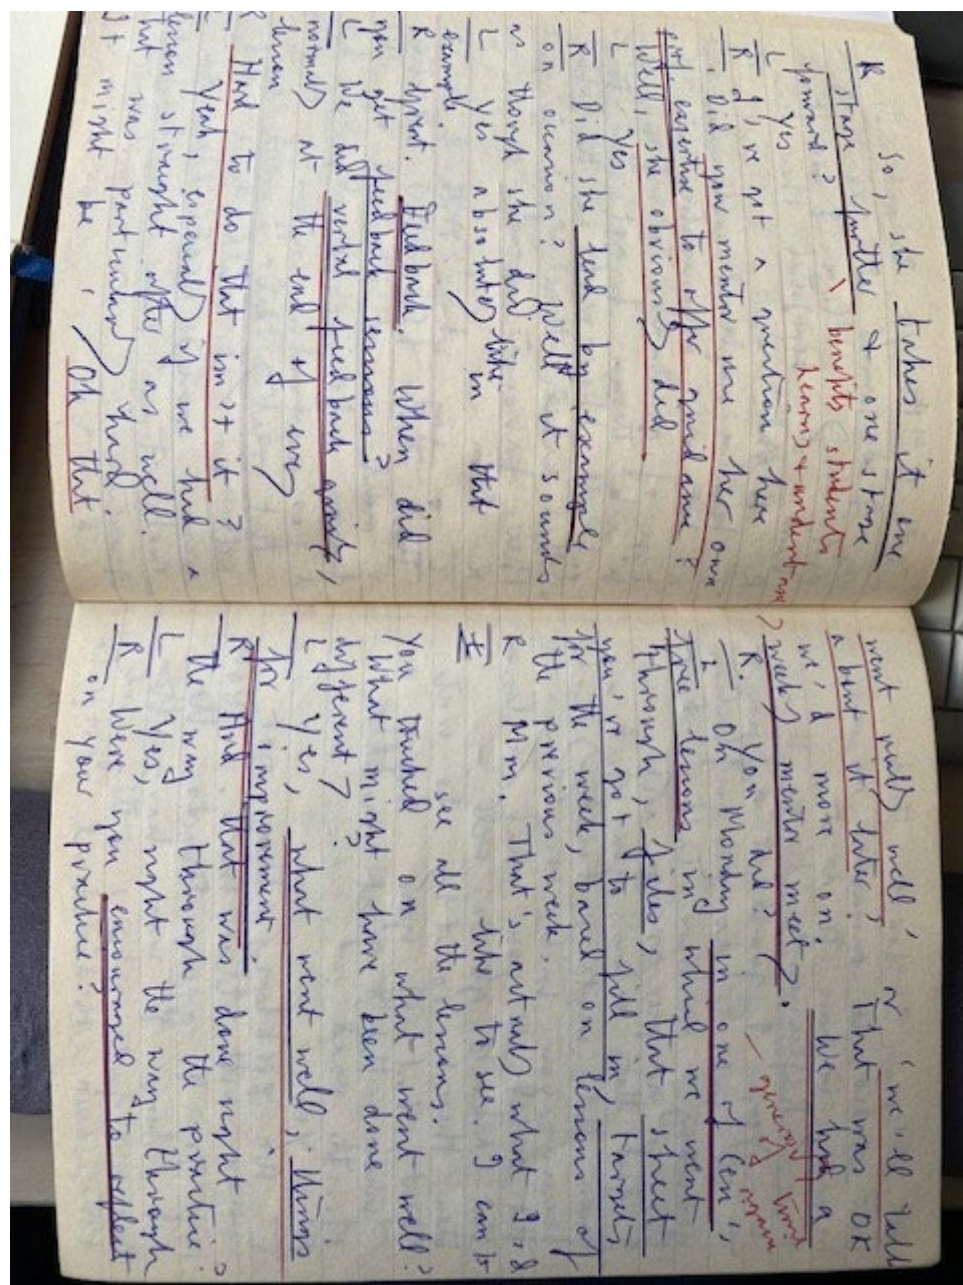 So, she takes it one
stage further & one stage
forward? \ benefits students
learning & understan
R
L Yes
R I've got a question here
. Did your mentor use her own
expertise to offer guidance?
L Well, she obviously did
Yes
R Did she lead by example
on occasion? Well it sounds
as though she did
L Yes absolutely like in that
example
R Great. Feedback. When did
you get feedback sessions?
L We did verbal feedback ,
normally at the end of every
lesson
R Hard to do that isn't it?
L Yeah, especially if we had a
lesson straight after as well.
That was particularly hard.
It might be , 'Oh that
went really well', or 'we'll talk
about it later.' That was OK
we'd more on. We had a
weekly mentor meet .
R. You did? – time
L Oh Monday in one of
free lessons in which we went
through, files, that sheet
you've got to fill in, targets
for the week, based on lessons of
the previous week.
R Mm. That's actually what I'd
like to see. I can't
see all the lessons.
You touched on what went well?
What might have been done
different?
L Yes, what went well, things
for improvement.
R And that was done right
the way through the practice?
L Yes, right the way through
R Were you encouraged to reflect
on your practice?